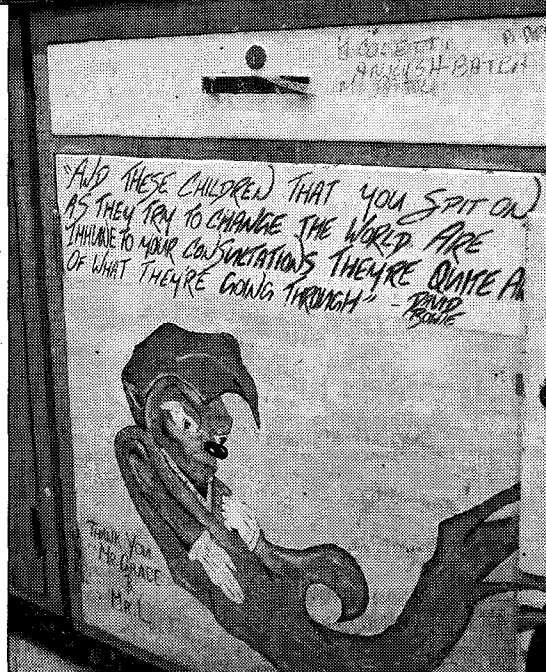 "AND THESE CHILDREN THAT YOU SPIT ON
AS THEY TRY TO CHANGE THE WORLD ARE
IMMUNE TO YOUR CONSULTATIONS THEY'RE QUITE
OF WHAT THEY'RE GOING THROUGH" - DAVID
BOWIE
THANK YOU
MR. GRACE
&
MR L